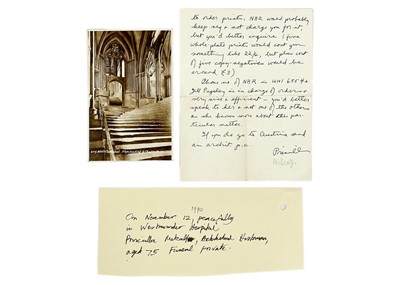 to order prints. NBR would probably
keep neg & not charge you for it,
but you'd better inquire (five
whole-plate prints would cost you
something like 22/6, but plus cost
of five copy-negatives would be
around £3)
Phone no. of NBR is WHI
is in charge of orders &
very nice & efficient — you'd better
speak to her & not one of the others
as she knows more about this par-
ticular matter.
If you do go to Austria send
an archit. p.c.
Priscilla
1990
On November 12, peacefully
in Westminster Hospital
Priscilla Metcalf, Architectural Historian,
aged 75 Funeral private.